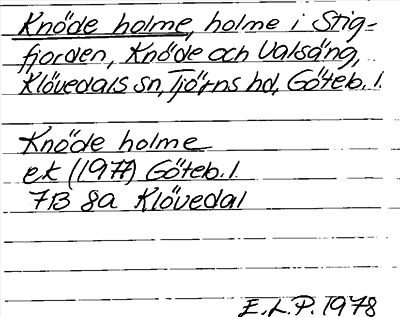 Knöde holme, holme i Stig=
fjorden, Knöde och Valsäng,
Klövedals sn, Tjörns hd, Göteb. l.
Knöde holme
ek (1977) Göteb. l.
7B 8a Klövedal
E.L.P. 1978